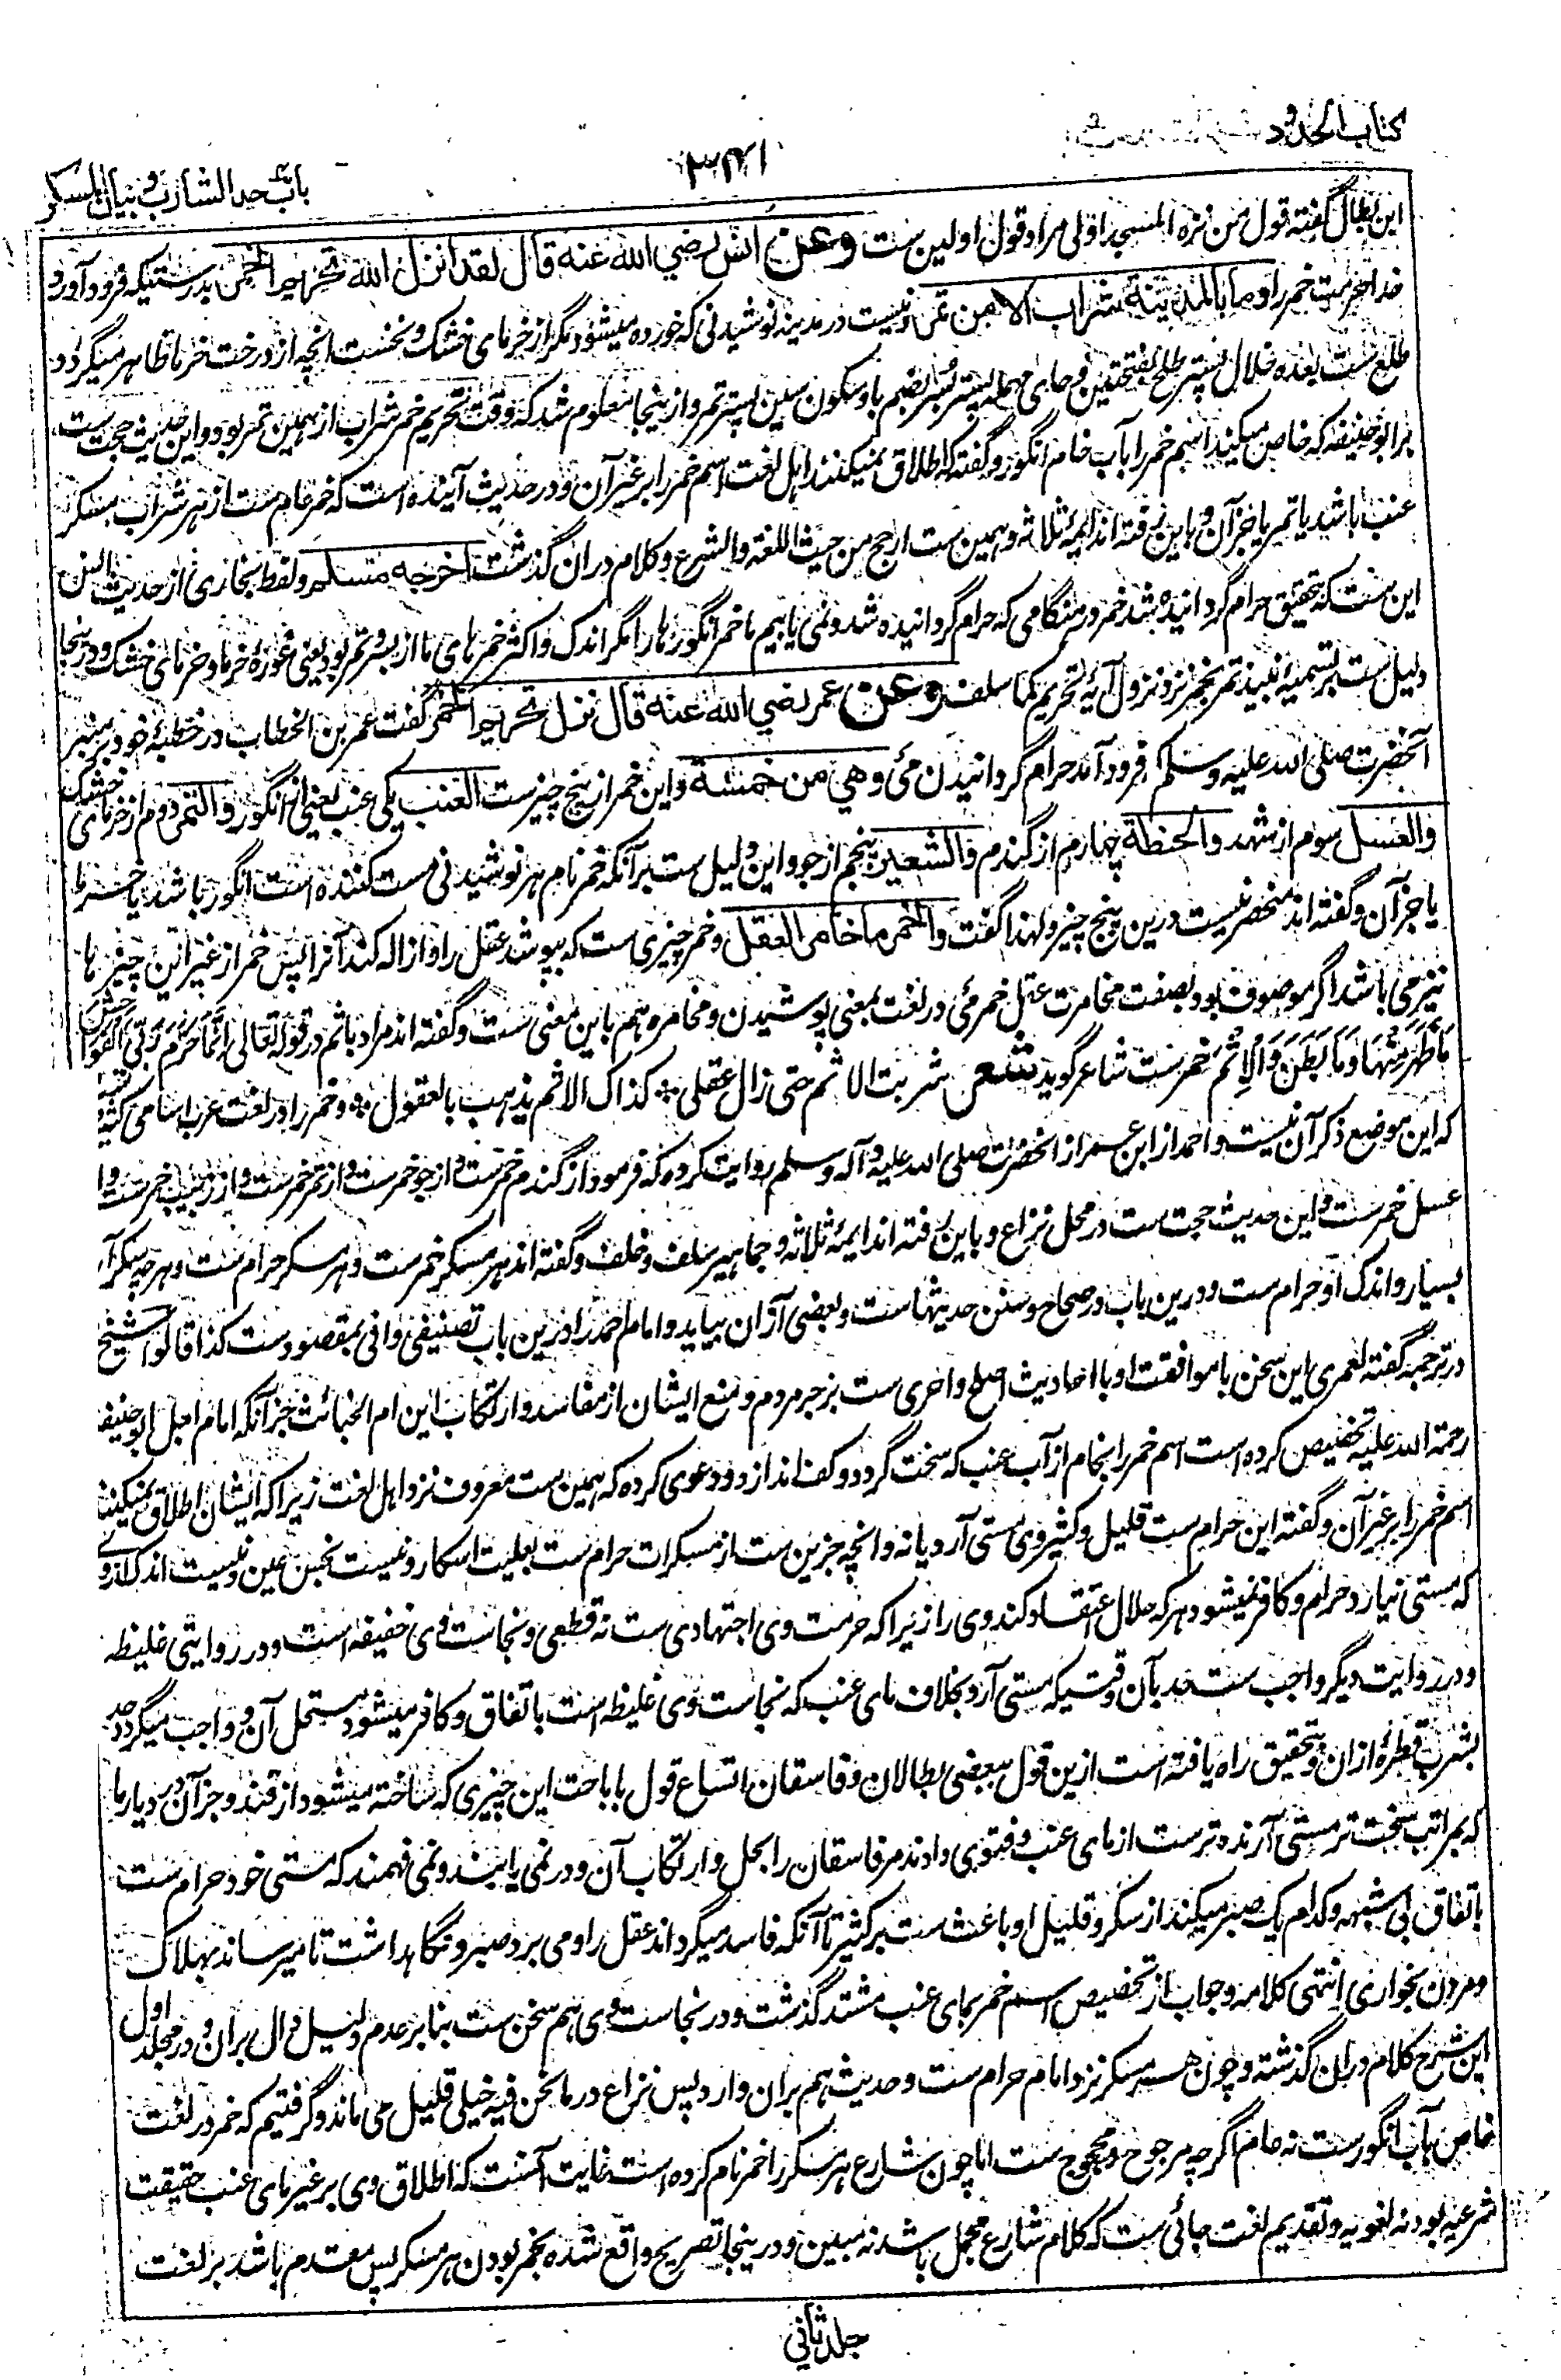 کتاب الحدود
۳۴۱
باب حد الشارب و بیان المسکر
ابن بطال گفته قول من نزه المسجد را ولی مراد قول اولین ست وعن انس رضي الله عنه قال لقد انزل الله تحریم الخمر بدرستیکه فرود آورد
خدا حرمت خمر را وما بالمدینة شراب الا من تمر و نیست در مدینه نوشیدنی که خورده میشود مگر از خرمای خشک و نخست آنچه از درخت خرما ظاهر میگردد
طلع ست بعده خلال پستر بلح بفتحتین و حای مهمله پستر بسر بضم با و سکون سین پستر تمر و از ینجا معلوم شد که وقت تحریم خمر شراب از همین تمر بود و این حدیث حجت ست
بر ابو حنیفه که خاص میکند اسم خمر را بآب خام انگور و گفته که اطلاق نمیکنند اهل لغت اسم خمر را بر غیر آن و در حدیث آینده است که خمر عام ست از هر شراب مسکر
عنب باشد یا تمر یا جز آن و باین رفته اند ایمه ثلاثه و همین ست ارجح من حیث اللغه والشرع و کلام دران گذشت اخرجه مسلم و لفظ بخاری از حدیث انس
این ست که تحقیق حرام گردانیده شد خمر در هنگامی که حرام گردانیده شد و نمی یابیم ما خمر انگورها را مگر اندک و اکثر خمرهای ما از بسر و تمر بود یعنی غوره خرما و خرمای خشک و درینجا
دلیل ست بر تسمیه نبیذ تمر بخمر نزد نزول آیه تحریم کما سلف وعن عمر رضي الله عنه قال نزل تحریم الخمر گفت عمر بن الخطاب در خطبه خود بر منبر
آنحضرت صلی الله علیه و سلم فرود آمد حرام گردانیدن می وهي من خمسة و این خمر از پنج چیز ست العنب یکی عنب یعنی از انگور والتمر دوم از خرمای خشک
والعسل سوم از شهد والحنطة چهارم از گندم والشعیر پنجم از جو و این دلیل ست بر آنکه خمر نام هر نوشیدنی مست کننده است انگور باشد یا خرما
یا جز آن و گفته اند منحصر نیست درین پنج چیز و لهذا گفت والخمر ما خامر العقل و خمر چیزی ست که بپوشد عقل را و ازاله کند آنرا پس خمر از غیر این چیزها
نیز می باشد اگر موصوف بود بصفت مخامرت عقل خمر می در لغت بمعنی پوشیدن و مخامره هم باین معنی ست و گفته اند مراد باثم در قوله تعالی انما حرم ربی الفواحش
ما ظهر منها وما بطن والاثم خمر ست شاعر گوید شعر شربت الاثم حتی زال عقلی ؞ کذاک الاثم یذهب بالعقول ؞ و خمر را در لغت عرب اسامی کثیره
که این موضع ذکر آن نیست و احمد از ابن عمر از آنحضرت صلی الله علیه و آله و سلم روایت کرده که فرمود از گندم خمر ست و از جو خمر ست و از تمر خمر ست و از زبیب خمر ست و از
عسل خمر ست و این حدیث حجت ست در محل نزاع و باین رفته اند ایمه ثلاثه و جماهیر سلف و خلف و گفته اند هر مسکر خمر ست و هر مسکر حرام ست و هر چه سکر آرد
بسیار و اندک او حرام ست و درین باب در صحاح و سنن حدیثهاست و بعضی ازان بیاید و امام احمد را درین باب تصنیفی وافی بمقصود ست کذا قالوا شیخ
در ترجمه گفته لعمری این سخن با موافقت او با احادیث اصلح و احری ست بزجر مردم و منع ایشان از مفاسد و ارتکاب این ام الخبائث جز آنکه امام اجل ابو حنیفه
رحمة الله علیه تخصیص کرده است اسم خمر را بخام از آب عنب که سخت گردد و کف اندازد و دعوی کرده که همین ست معروف نزد اهل لغت زیرا که ایشان اطلاق نمیکنند
اسم خمر را بر غیر آن و گفته این حرام ست قلیل و کثیر وی مستی آرد یا نه و آنچه جز این ست از مسکرات حرام ست بعلیت اسکار و نیست نجس عین و نیست اندک از وی
که مستی نیارد حرام و کافر نمیشود هر که حلال اعتقاد کند وی را زیرا که حرمت وی اجتهادی ست نه قطعی و نجاست وی خفیفه است و در روایتی غلیظه
و در روایت دیگر واجب ست حد بآن وقتیکه مستی آرد بخلاف مای عنب که نجاست وی غلیظه است باتفاق و کافر میشود مستحل آن و واجب میگردد حد
بشرب قطره ازان و بتحقیق راه یافته است ازین قول ببعضی بطالان و فاسقان اتساع قول باباحت این چیزی که ساخته میشود از قند و جز آن در دیار ما
که بمراتب سخت تر مستی آرنده ترست از مای عنب و فتوی دادند مر فاسقان را بحل و ارتکاب آن و در نمی یابند و نمی فهمند که مستی خود حرام ست
باتفاق بی شبهه و کدام یک صبر میکند از سکر و قلیل او باعث ست بر کثیر تا آنکه فاسد میگرداند عقل را و می برد صبر و نگاهداشت تا میرساند بهلاک
و مردن بخواری انتهی کلامه و جواب از تخصیص اسم خمر بمای عنب مشتد گذشت و در نجاست وی هم سخن ست بنابر عدم دلیل دال بران و در مجلد اول
این شرح کلام دران گذشته و چون هر مسکر نزد امام حرام ست و حدیث هم بران وارد پس نزاع در ما نحن فیه خیلی قلیل می ماند و گرفتیم که خمر در لغت
خاص بآب انگور ست نه عام اگرچه مرجوح و محجوج ست اما چون شارع هر مسکر را خمر نام کرده است غایت آنست که اطلاق وی بر غیر مای عنب حقیقت
شرعیه بود نه لغویه و تقدیم لغت جائی ست که کلام شارع مجمل باشد نه مبین و درینجا تصریح واقع شده بخمر بودن هر مسکر پس مقدم باشد بر لغت
جلد ثانی